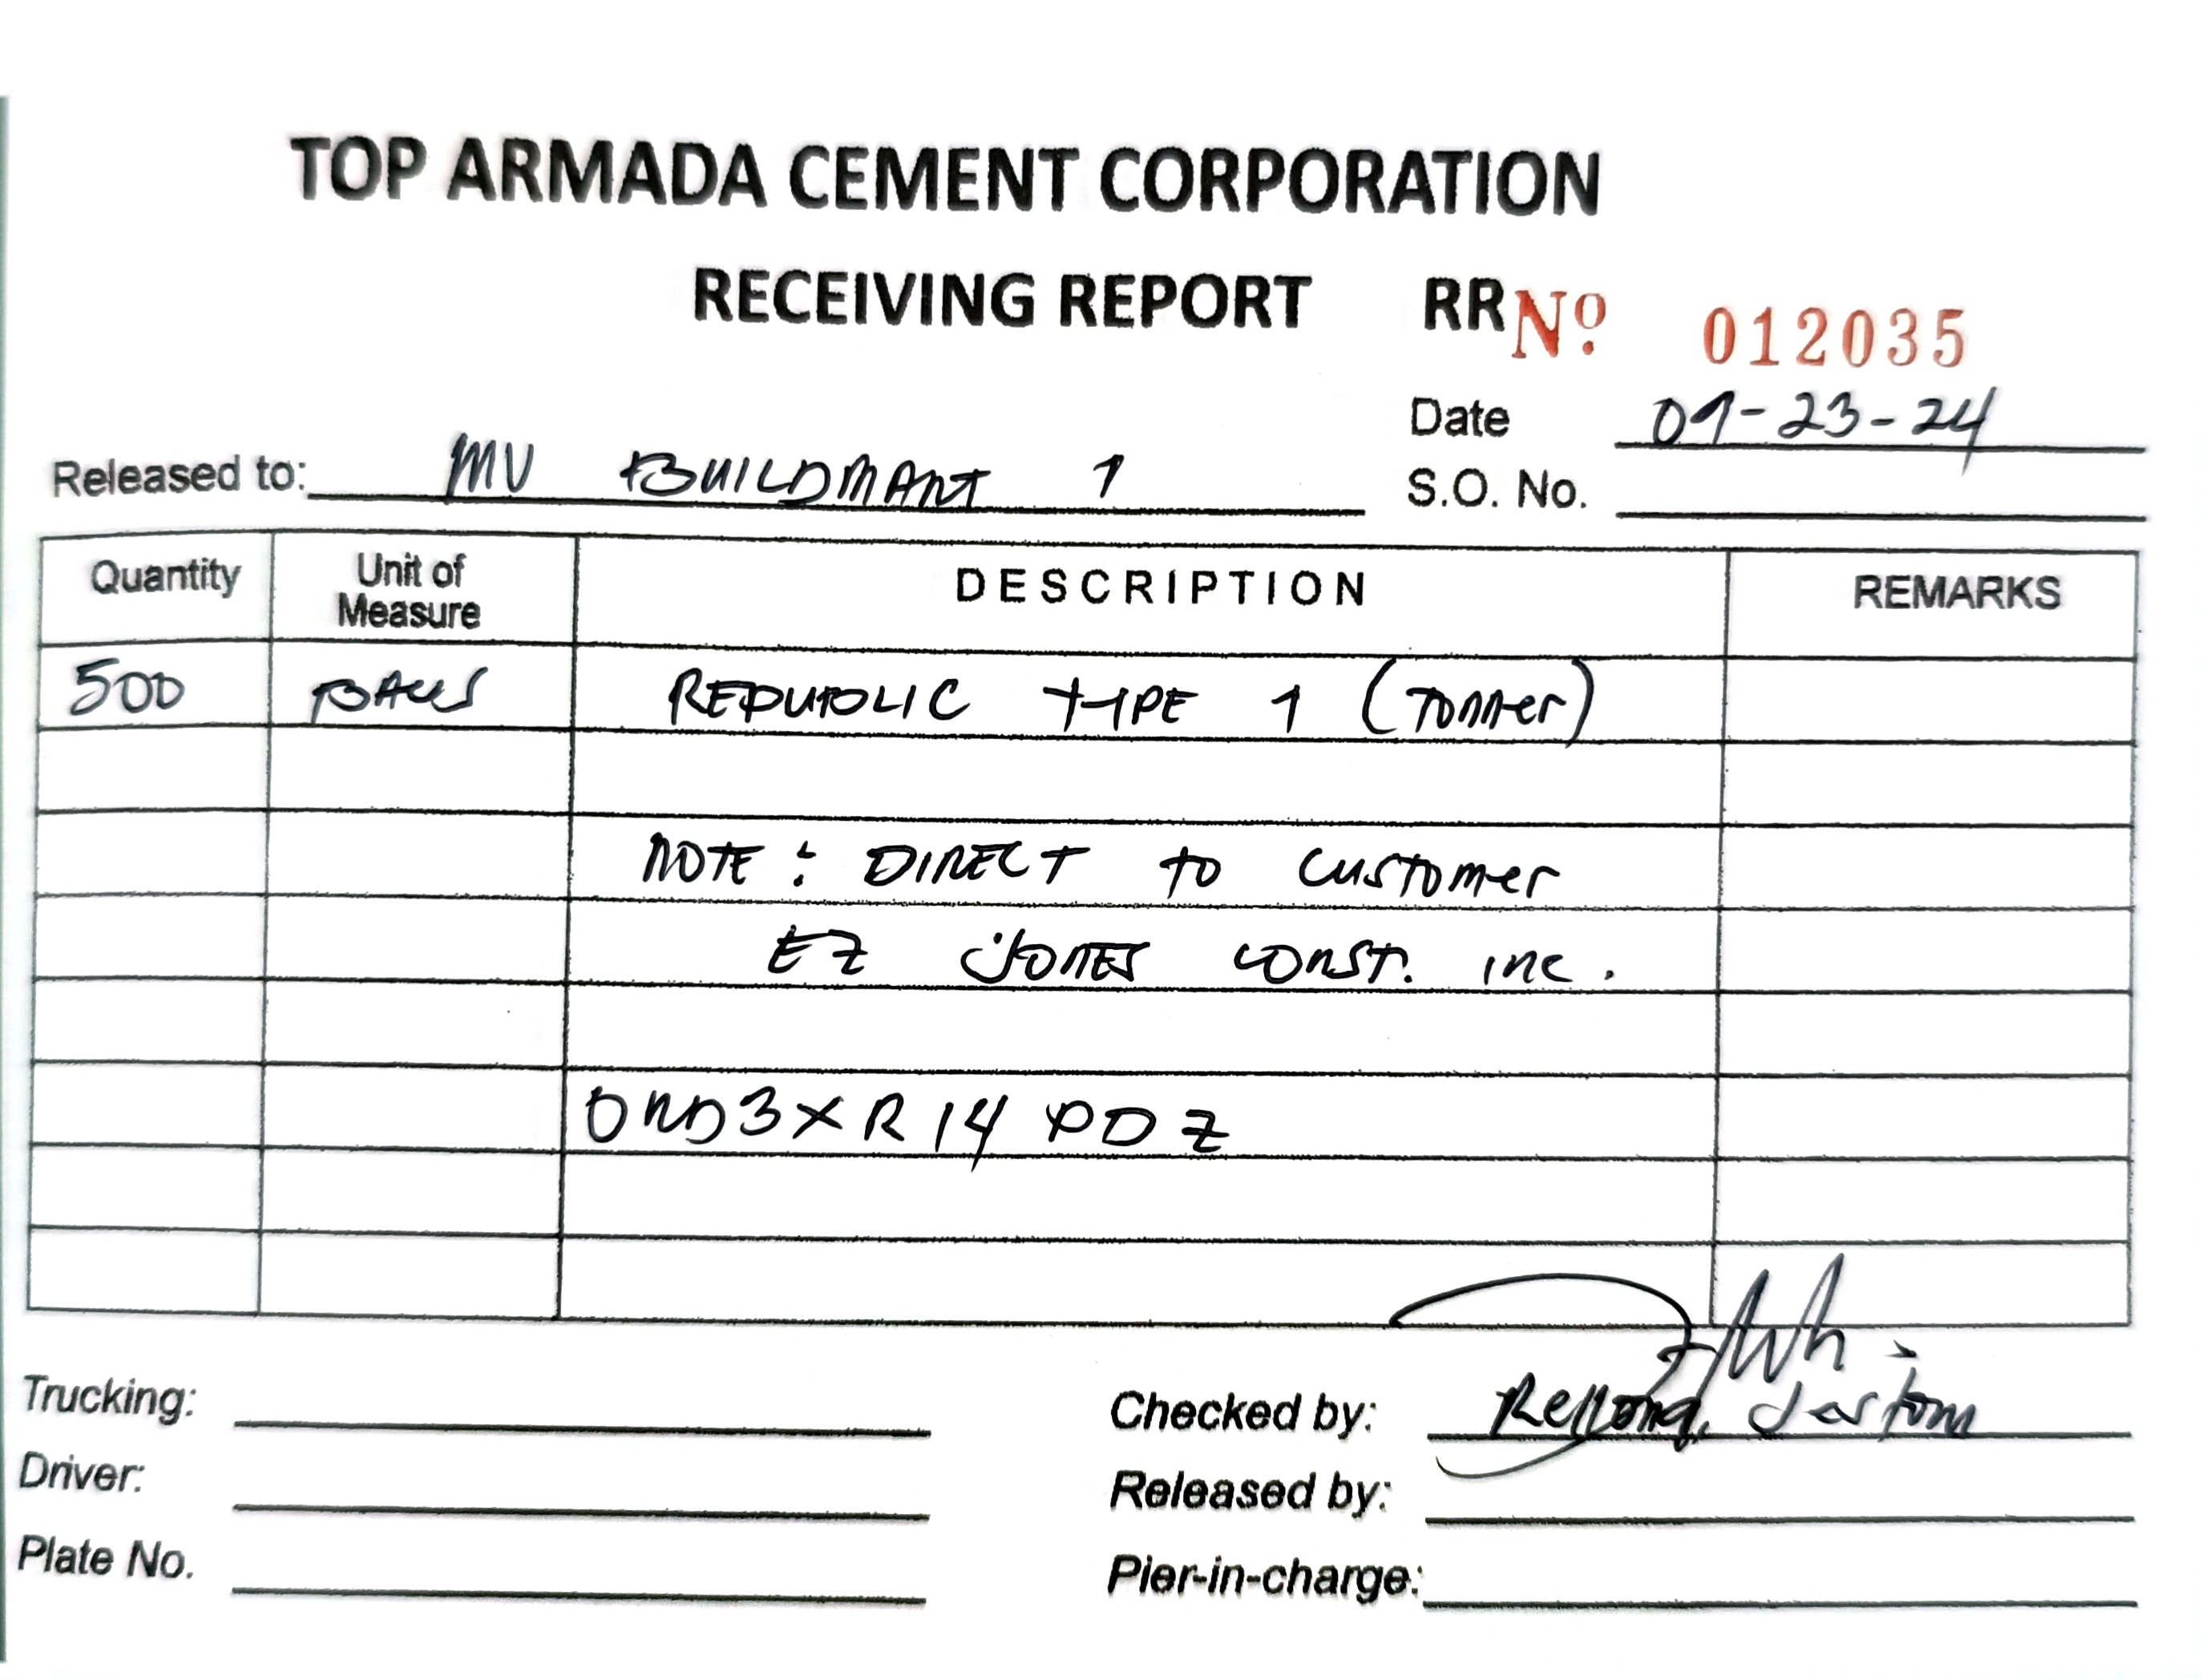 TOP ARMADA CEMENT CORPORATION
RECEIVING REPORT RR Nº 012035
Date 09-23-24
Released to: MV BUILDMART 1
S.O. No.
Quantity Unit of Measure DESCRIPTION REMARKS
500 BAGS REPUBLIC TYPE 1 (TONNER)
NOTE: DIRECT TO CUSTOMER
EZ JONES CONST. INC.
Trucking:
Checked by:
Driver:
Released by:
Plate No.
Pier-in-charge: